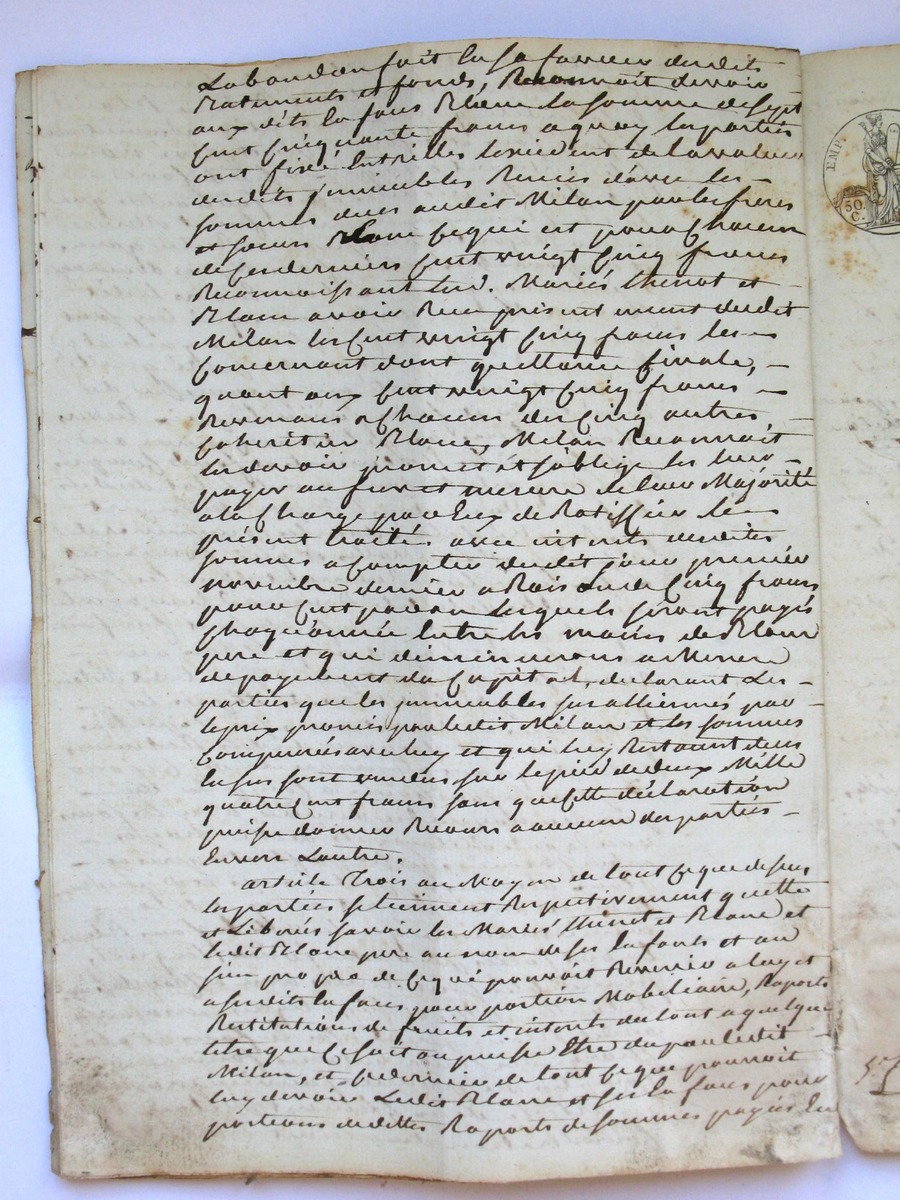 Labandon fait en sa faveur desdits
Batiments et fonds, Reconnoit devoir
aux dits Enfans Blanc la somme de sept
cent cinquante francs a quoy les parties
ont fixé Entrelles lexcédent de la valeur
desdits jmmeubles Reunies davec les
sommes dues audit Milan par les freres
et soeurs Blanc ce qui est pour chacun
de ces derniers cent vingt cinq francs
Reconnoissant lesd. Mariés Thenot et
Blanc avoir Recu présentement dudit
Milan les cent vingt cinq francs les
concernant dont quittance finale,
quant aux cent vingt cinq francs
Revenans a chacun des cinq autres
cohéritiers Blanc, Milan Reconnoit
les devoir promet et soblige les leur
payer au fur et mesure de leur Majorité
a la charge par Eux de Ratiffier le
présent traité avec intérets desdites
sommes a compter dudit jour premier
novembre dernier a Rais de cinq francs
pour cent par an lesquels seront payés
chaque année Entre les mains de Blanc
pere et qui diminueront a Mesure
de payement du Capital, declarant Les
parties que les jmmeubles sus alliennés par
le prix promis par ledit Milan et les sommes
compensés avec luy et qui luy Restoient dues
en sus sont vendus sur le pied de deux Mille
quatre cent francs sans que cette déclaration
puisse donner Recours a aucune des parties
Envers Lautre.
article Trois au Moyen de tout ce que dessus
les parties se tiennent Respectivement quitte
et Libérés savoir les Mariés Thenot et Blanc et
ledit Blanc pere au nom de ses Enfants et au
sien propre de ce qui pouvoit Revenir a luy et
a sesdits Enfans pour portion Mobiliaire, Raports
Restitutions de fruits et intérets du tout a quelque
titre que ce soit ou puisse Etre du par ledit
Milan, et ce dernier de tout ce que pouvoit
luy devoir Ledit Blanc et ses Enfans pour
portions de dettes Raports de sommes payées En
EMP.
50
C.